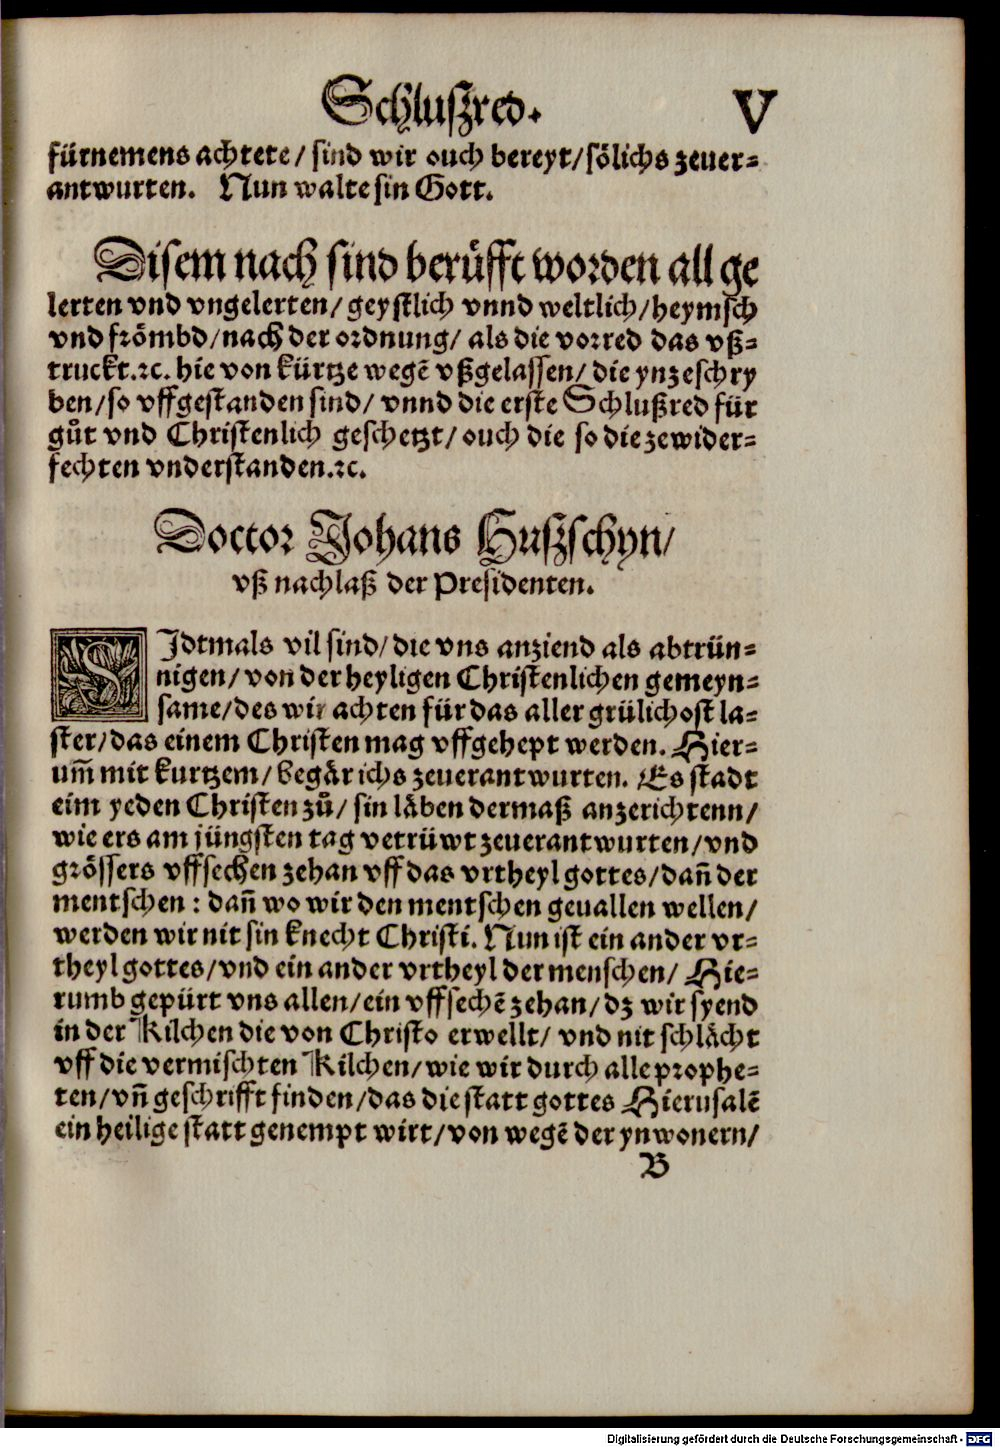 Schluſzred. V
fürnemens achtete/ ſind wir ouch bereyt/ ſoͤlichs zeuer⸗
antwurten. Nun walte ſin Gott.
Diſem nach ſind beruͤfft worden all ge
lerten vnd vngelerten/ geyſtlich vnnd weltlich/ heymſch
vnd froͤmbd/ nach der ordnung/ als die vorred das vß⸗
truckt.ꝛc. hie von kürtze wegē vßgelaſſen/ die ynzeſchry
ben/ ſo vffgeſtanden ſind/ vnnd die erſte Schlußred für
guͦt vnd Chriſtenlich geſchetzt/ ouch die ſo die zewider⸗
fechten vnderſtanden.ꝛc.
Doctor Johans Huſzſchyn/
vß nachlaß der Preſidenten.
SJdtmals vil ſind/ die vns anziend als abtrün⸗
nigen/ von der heyligen Chriſtenlichen gemeyn⸗
ſame/ des wir achten für das aller grülichoſt la⸗
ſter/ das einem Chriſten mag vffgehept werden. Hier⸗
um̃ mit kurtzem/ begaͤr ichs zeuerantwurten. Es ſtadt
eim yeden Chriſten zuͦ/ ſin laͤben dermaß anzerichtenn/
wie ers am jüngſten tag vetrüwt zeuerantwurten/ vnd
groͤſſers vffſechen zehan vff das vrtheyl gottes/ dañ der
mentſchen : dañ wo wir den mentſchen geuallen wellen/
werden wir nit ſin knecht Chriſti. Nun iſt ein ander vr⸗
theyl gottes/ vnd ein ander vrtheyl der menſchen/ Hie⸗
rumb gepürt vns allen/ ein vffſechē zehan/ dz wir ſyend
in der Kilchen die von Chriſto erwellt/ vnd nit ſchlaͤcht
vff die vermiſchten Kilchen/ wie wir durch alle prophe⸗
ten/ vñ geſchrifft finden/ das die ſtatt gottes Hieruſalē
ein heilige ſtatt genempt wirt/ von wegē der ynwonern/
B
Digitalisierung gefördert durch die Deutsche Forschungsgemeinschaft - DFG